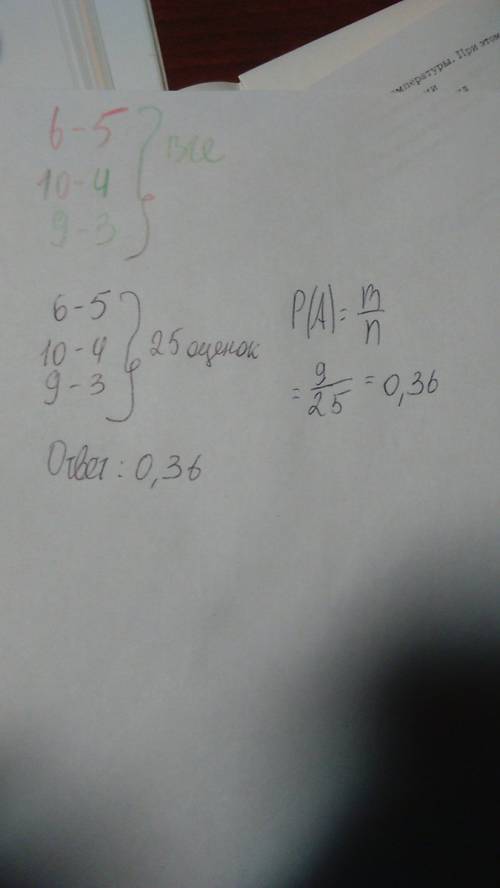 мпературы. При этом
6-5
10-4
9-3
все
6-5
10-4
9-3
25 оценок
P(A)= m/n
= 9/25 = 0,36
Ответ: 0,36